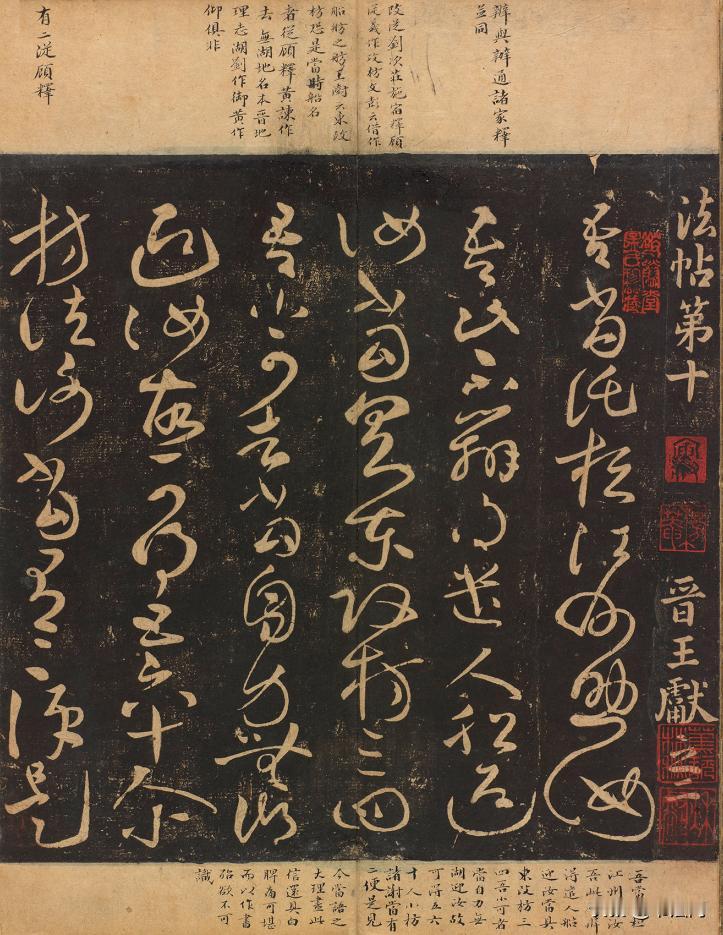 辧與辦通諸家釋
並同
改從劉次莊施宿釋顧
從義作汝枋文彭云借作
船舫之舫王澍云東改
枋恐是當時船名
者從顧釋黃諫作
去無湖地名本晉地
理志湖劉作御黃作
仰俱非
有二從顧釋
法帖第十 晉王獻之二
吾當託桓江州助汝
吾此不辦得遣人船迎
汝當具東改枋三四
吾小可者當自力無湖
迎汝故可得五六十人小
枋諸謝當有二便是
吾當託桓
江州助汝
吾此不辧
得遣人船
迎汝當具
東改枋三
四吾小可者
當自力無
湖迎汝故
可得五六
十人小枋
諸謝當有
二便是見
今當語之
大理盡此
信還具白
脾痛可堪
而以作書
殆欲不可
識